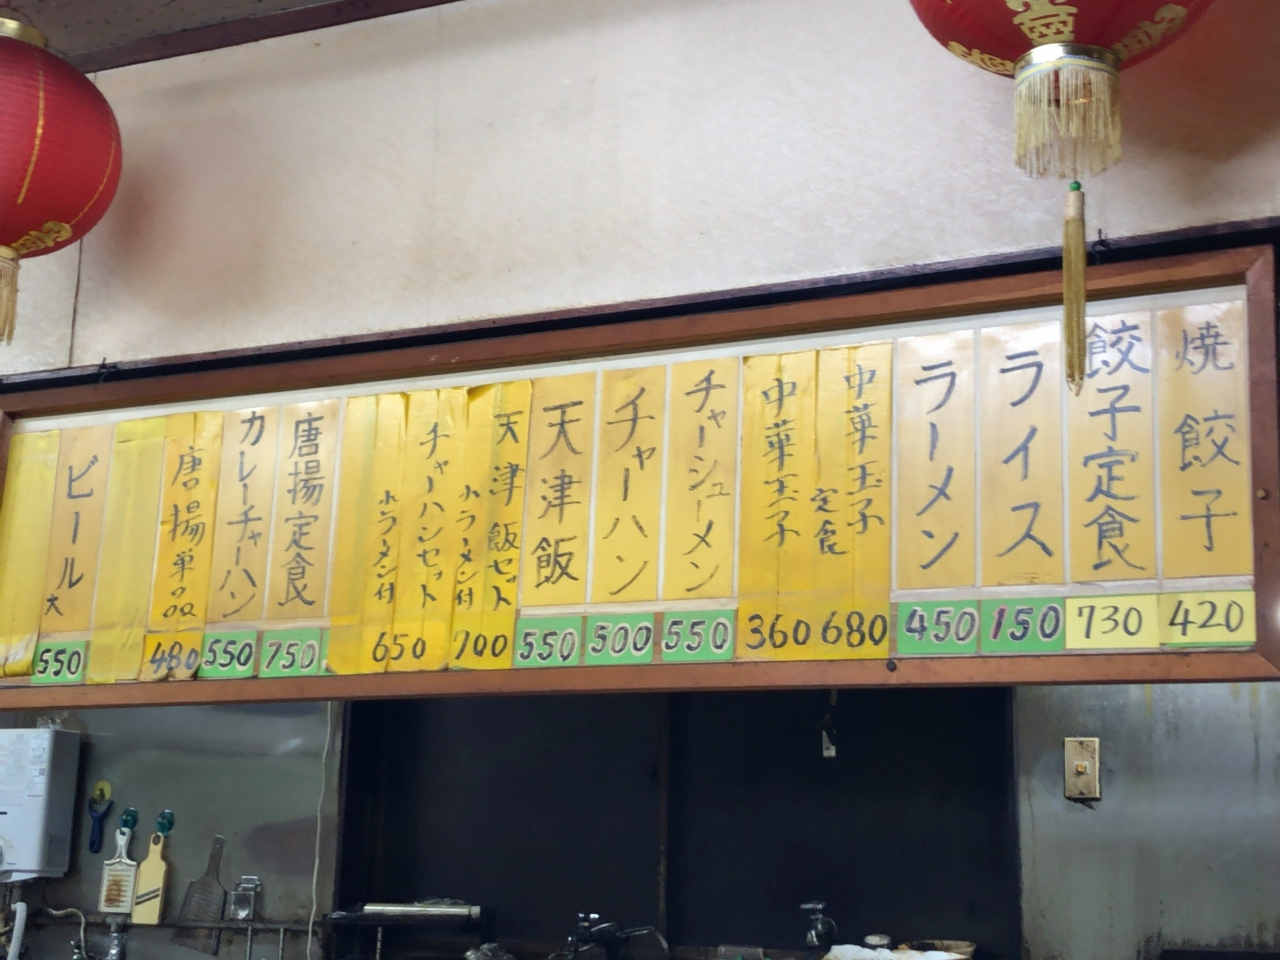 焼餃子
420
餃子定食
730
ライス
150
ラーメン
450
中華玉子
定食
680
中華玉子
360
チャーシューメン
550
チャーハン
500
天津飯
550
天津飯セット
小ラーメン付
700
チャーハンセット
小ラーメン付
650
唐揚定食
750
カレーチャーハン
550
唐揚単品
480
ビール大
550